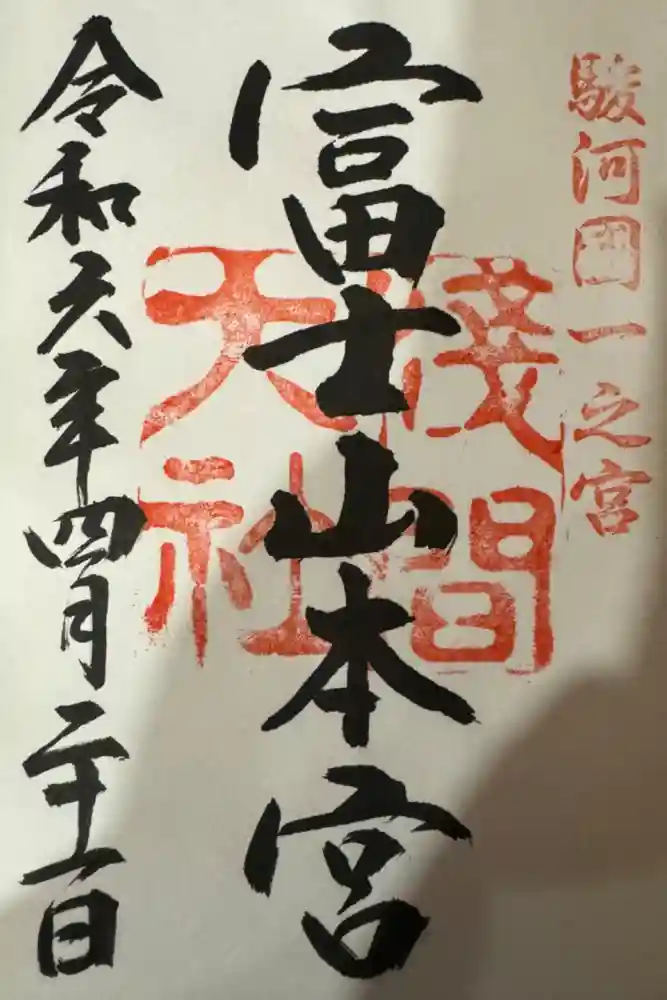 駿河國一之宮
富士山本宮
淺間大社
令和六年四月二十一日